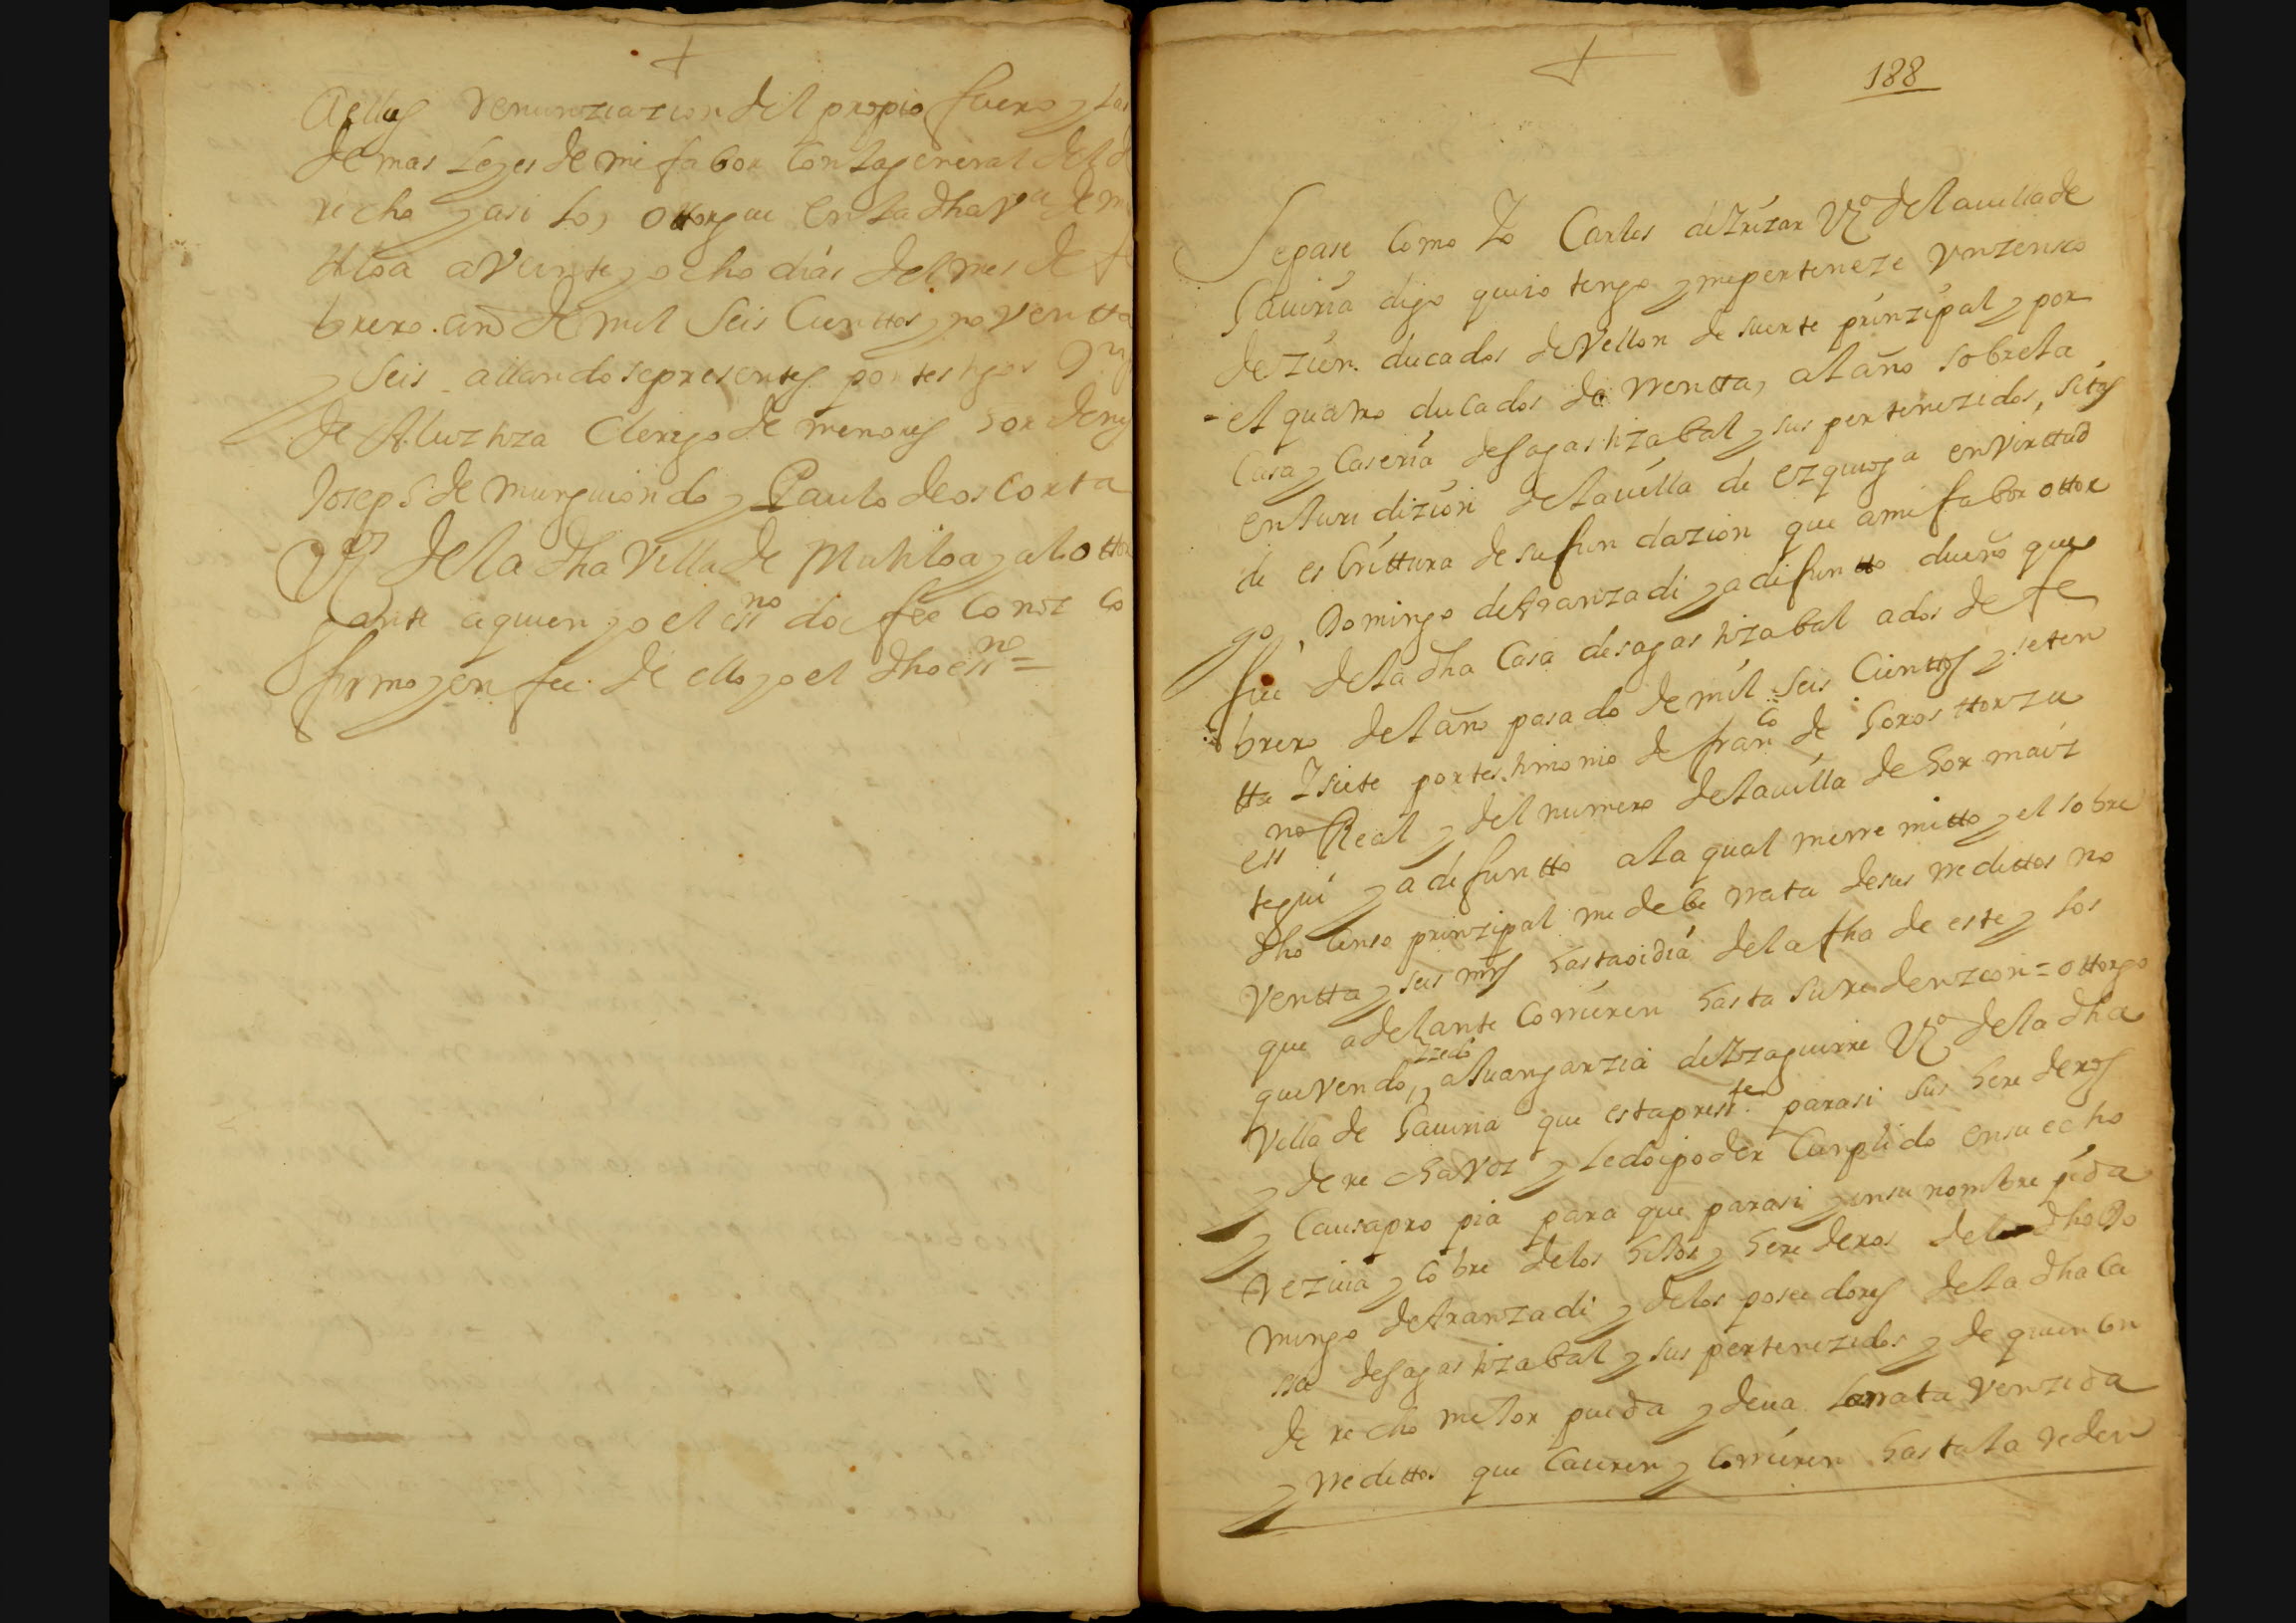 aellas renunziazion del propio fuero y las
demas leyes de mi fabor con la general del d
recho y asi lo, ottorgue en la dha Va de m
utiloa a veinte y ocho dias del mes de fe
brero. año de mil seis cienttos y noventta
y seis allandose presentes por testigos
de Aluztiza Clerigo de menores hordenes
Joseph de murguiondo y Paulo de os corta
Vos de la dha Villa de Mutiloa y al otto
gante a quien yo el essno doi fee conozco
firmo y en fee de ello yo el dho essno =
188
Sepase como Yo Carlos de Yrizar Vo de la uilla de
Gauiria digo que io tengo y me perteneze vn zenso
de zien ducados de Vellon de suerte prinzipal y por
el quatro ducados de rrentta, al año sobre la
Casa y Caseria de sagastizabal y sus pertenezidos, sitas
en Juridizion de la uilla de ezquioga en virttud
de escrittura de su fundazion que a mi fabor ottor
go, Domingo de Aranzadi ya difuntto dueño que
fue de la dha Casa de sagastizabal a dos de fe
brero del año pasado de mil seis Cienttos y seten
tta Y siete por testimonio de franco de Gorosttorzu
essno Real y del numero de la uilla de hormaiz
tegui ya difuntto a la qual me rremitto y el sobre
dho Censo prinzipal me debe rrata de sus redittos no
ventta y seis mrs hasta oi dia de la fha de este y los
que adelante Corrieren hasta su redenzion = ottorgo
que vendo, y zedo a Juan garzia de Yzaguirre Vo de la dha
Villa de Gauiria que esta preste para si sus herederos
y derecha voz y le doi poder Cumplido en su echo
y Causa propia para que para si y en su nombre pida
reziua y cobre de los hijos y herederos del dho Do
mingo de Aranzadi y de los posedores de la dha Ca
ssa de sagastizabal y sus pertenezidos y de quien con
derecho mejor pueda y deua la rrata venzida
y rredittos que Caieren y Corrieren hasta la reden